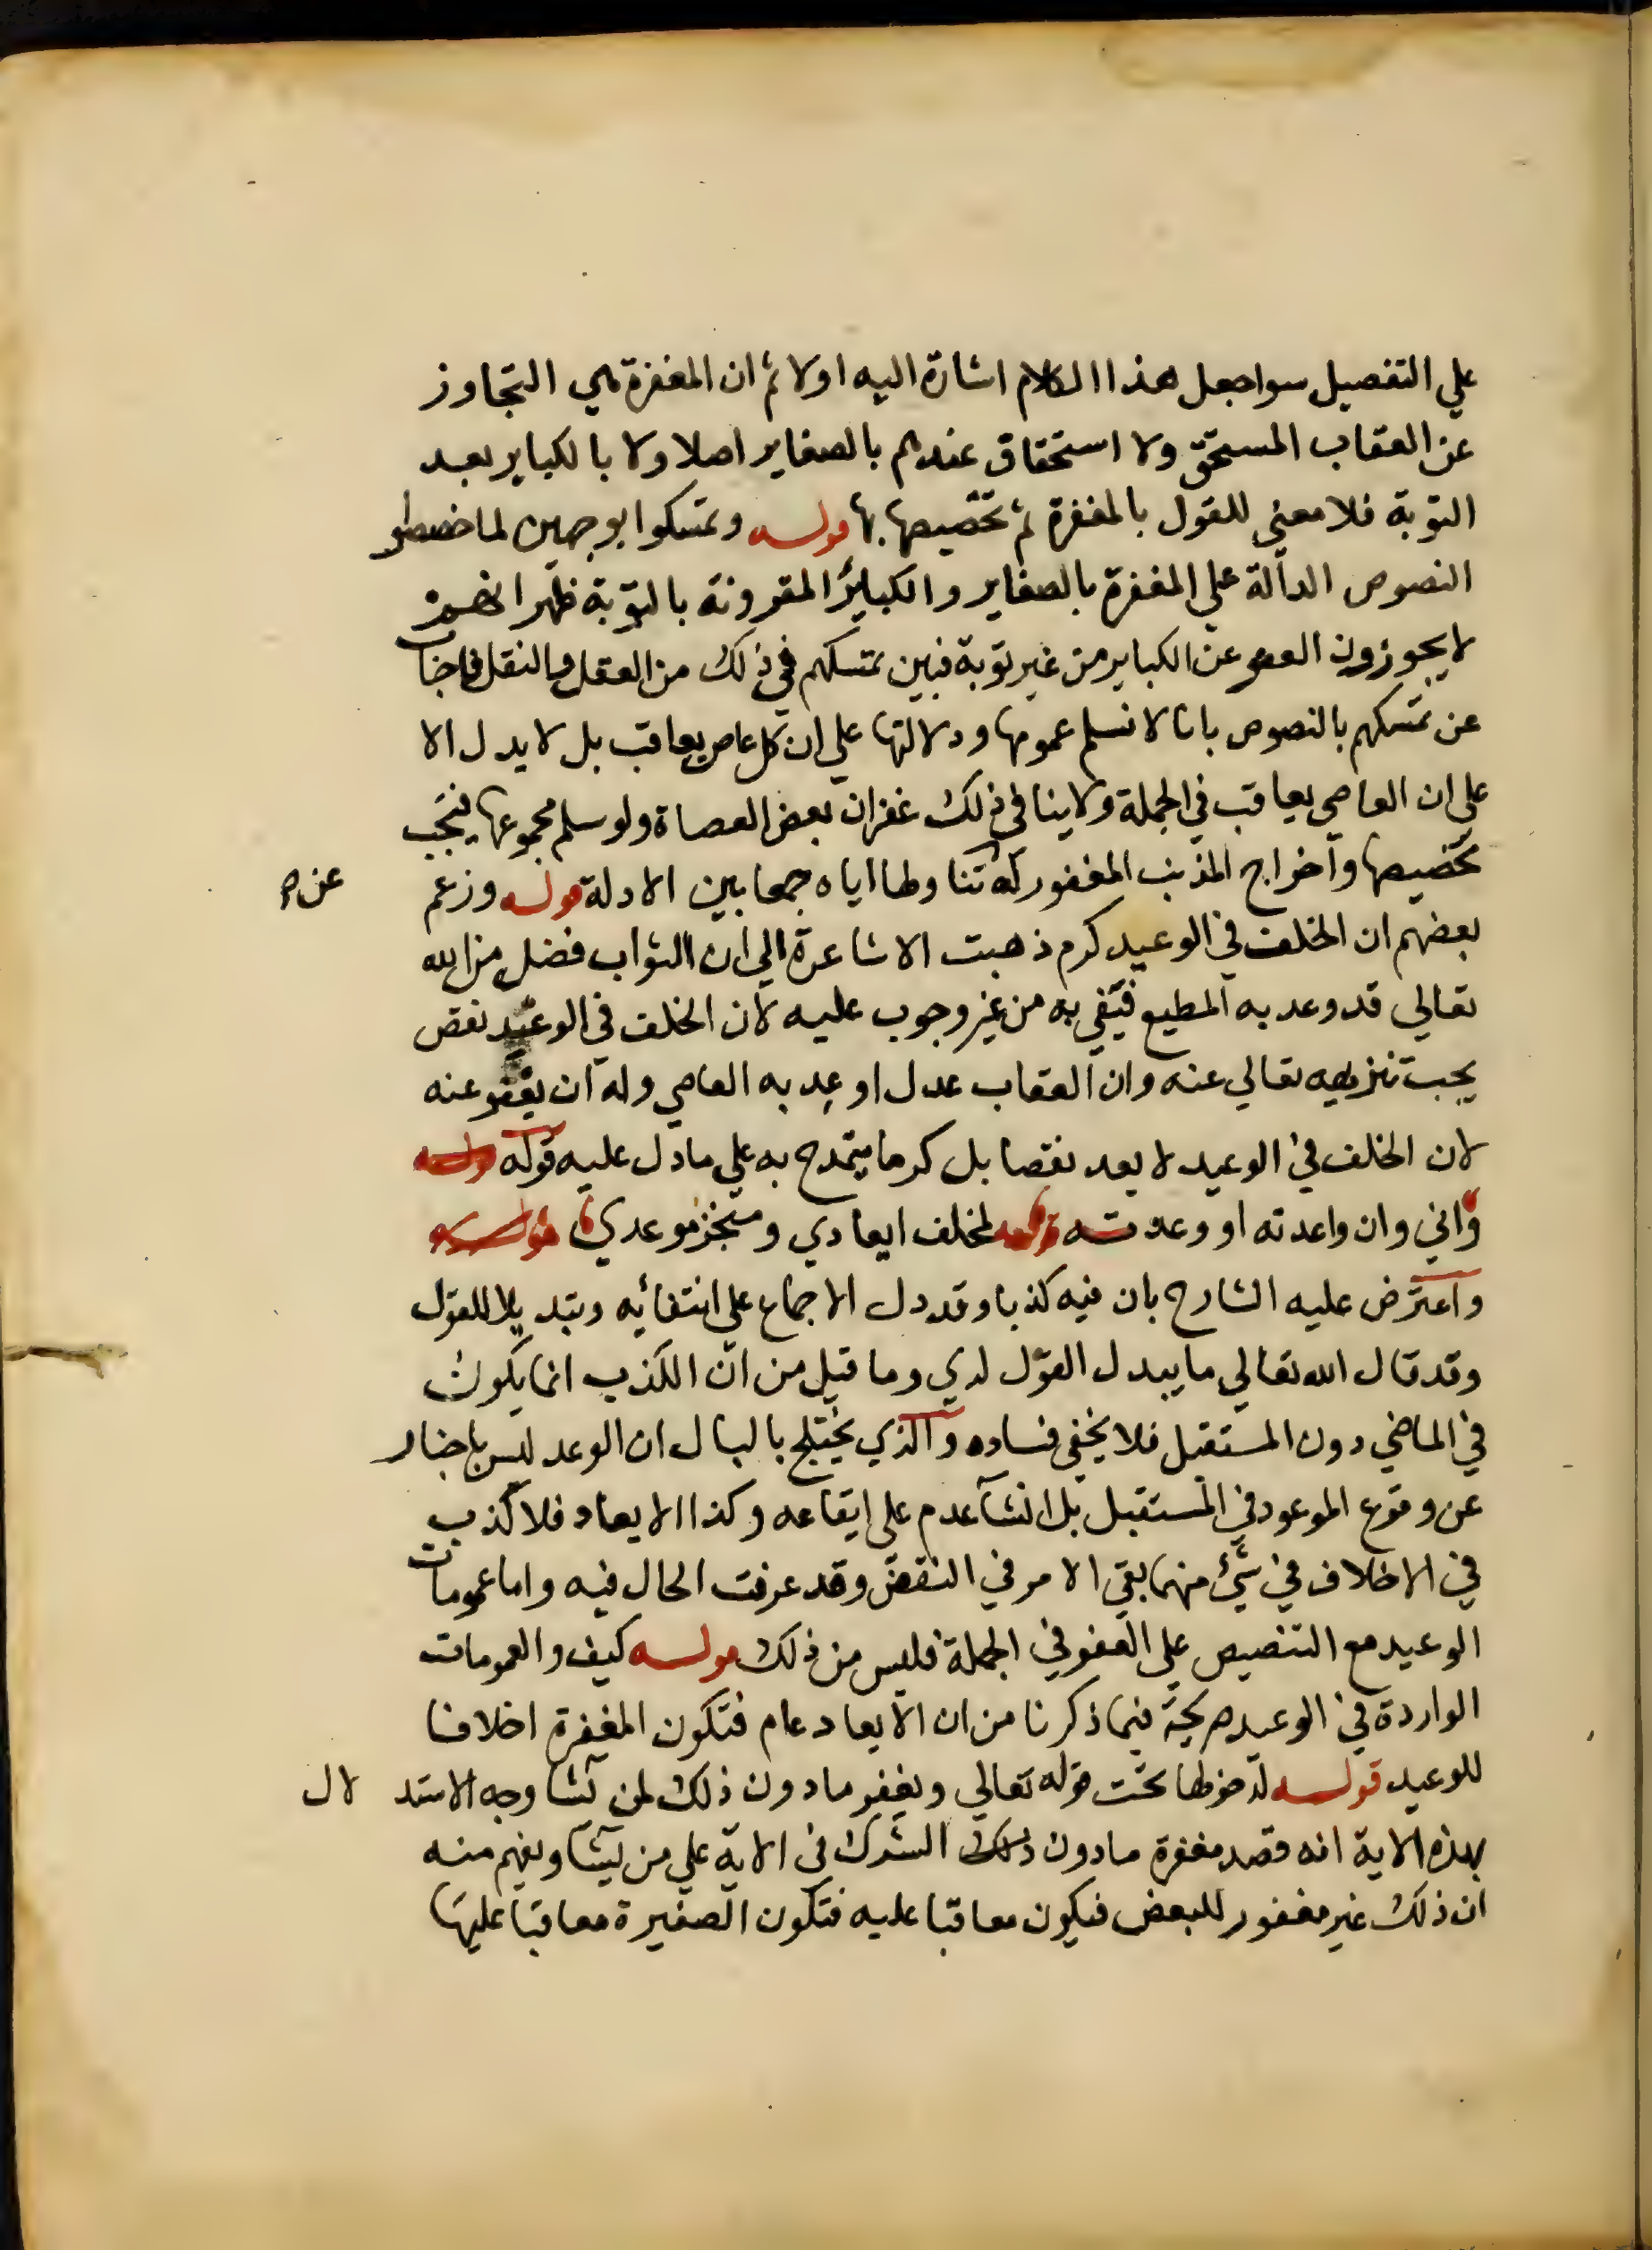 علي التفصيل سوا جعل هذا الكلام اشارة اليه اولا ثم ان المغفرة هي التجاوز
عن العقاب المستحق ولا استحقاق عندهم بالصغاير اصلا ولا بالكباير بعد
التوبة فلا معني للقول بالمغفرة ثم تخصيصها بها قوله وتمسكوا بوجهين لما خصصوا
النصوص الدالة علي المغفرة بالصغاير والكباير المقرونة بالتوبة ظهر انهم
لا يجوزون العفو عن الكباير من غير توبة فبين تمسكهم في ذلك من العقل والنقل فاجاب
عن تمسكهم بالنصوص بانا لا نسلم عمومها ودلالتها علي ان كل عاص يعاقب بل لا يدل الا
علي ان العاصي يعاقب في الجملة ولا ينافي ذلك غفران بعض العصاة ولو سلم عمومها فيجب
تخصيصها واخراج المذنب المغفور له تناولها اياه جمعا بين الادلة قوله وزعم
عن
بعضهم ان الخلف في الوعيد كرم ذهبت الاشاعرة الي ان الثواب فضل من الله
تعالي قد وعد به المطيع فيفي به من غير وجوب عليه لان الخلف في الوعيد نقص
يجب تنزيهه تعالي عنه وان العقاب عدل اوعد به العاصي وله ان يعفو عنه
لان الخلف في الوعيد لا يعد نقصا بل كرما يتمدح به علي ما دل عليه قوله
واني وان واعدته او وعدته لمخلف ايعادي ومنجز موعدي
واعترض عليه الشارح بان فيه كذبا وقد دل الاجماع علي انتفائه وتبديلا للقول
وقد قال الله تعالي ما يبدل القول لدي وما قيل من ان الكذب انما يكون
في الماضي دون المستقبل فلا يخفي فساده والذي يختلج بالبال ان الوعد ليس باخبار
عن وقوع الموعود في المستقبل بل انشآ عدم علي ايقاعه وكذا الايعاد فلا كذب
في الاخلاف في شيء منهما بقي الامر في النقض وقد عرفت الحال فيه واما عمومات
الوعيد مع التنصيص علي العفو في الجملة فليس من ذلك قوله كيف والعمومات
الواردة في الوعيد صريحة فيما ذكرنا من ان الايعاد عام فتكون المغفرة اخلافا
للوعيد قوله لدخولها تحت قوله تعالي ويغفر ما دون ذلك لمن يشآ وجه الاستدلال
بهذه الاية انه قصد مغفرة ما دون الشرك في الاية علي من يشآ ويفهم منه
ان ذلك غير مغفور للبعض فيكون معاقبا عليه فتكون الصغيرة معاقبا عليها